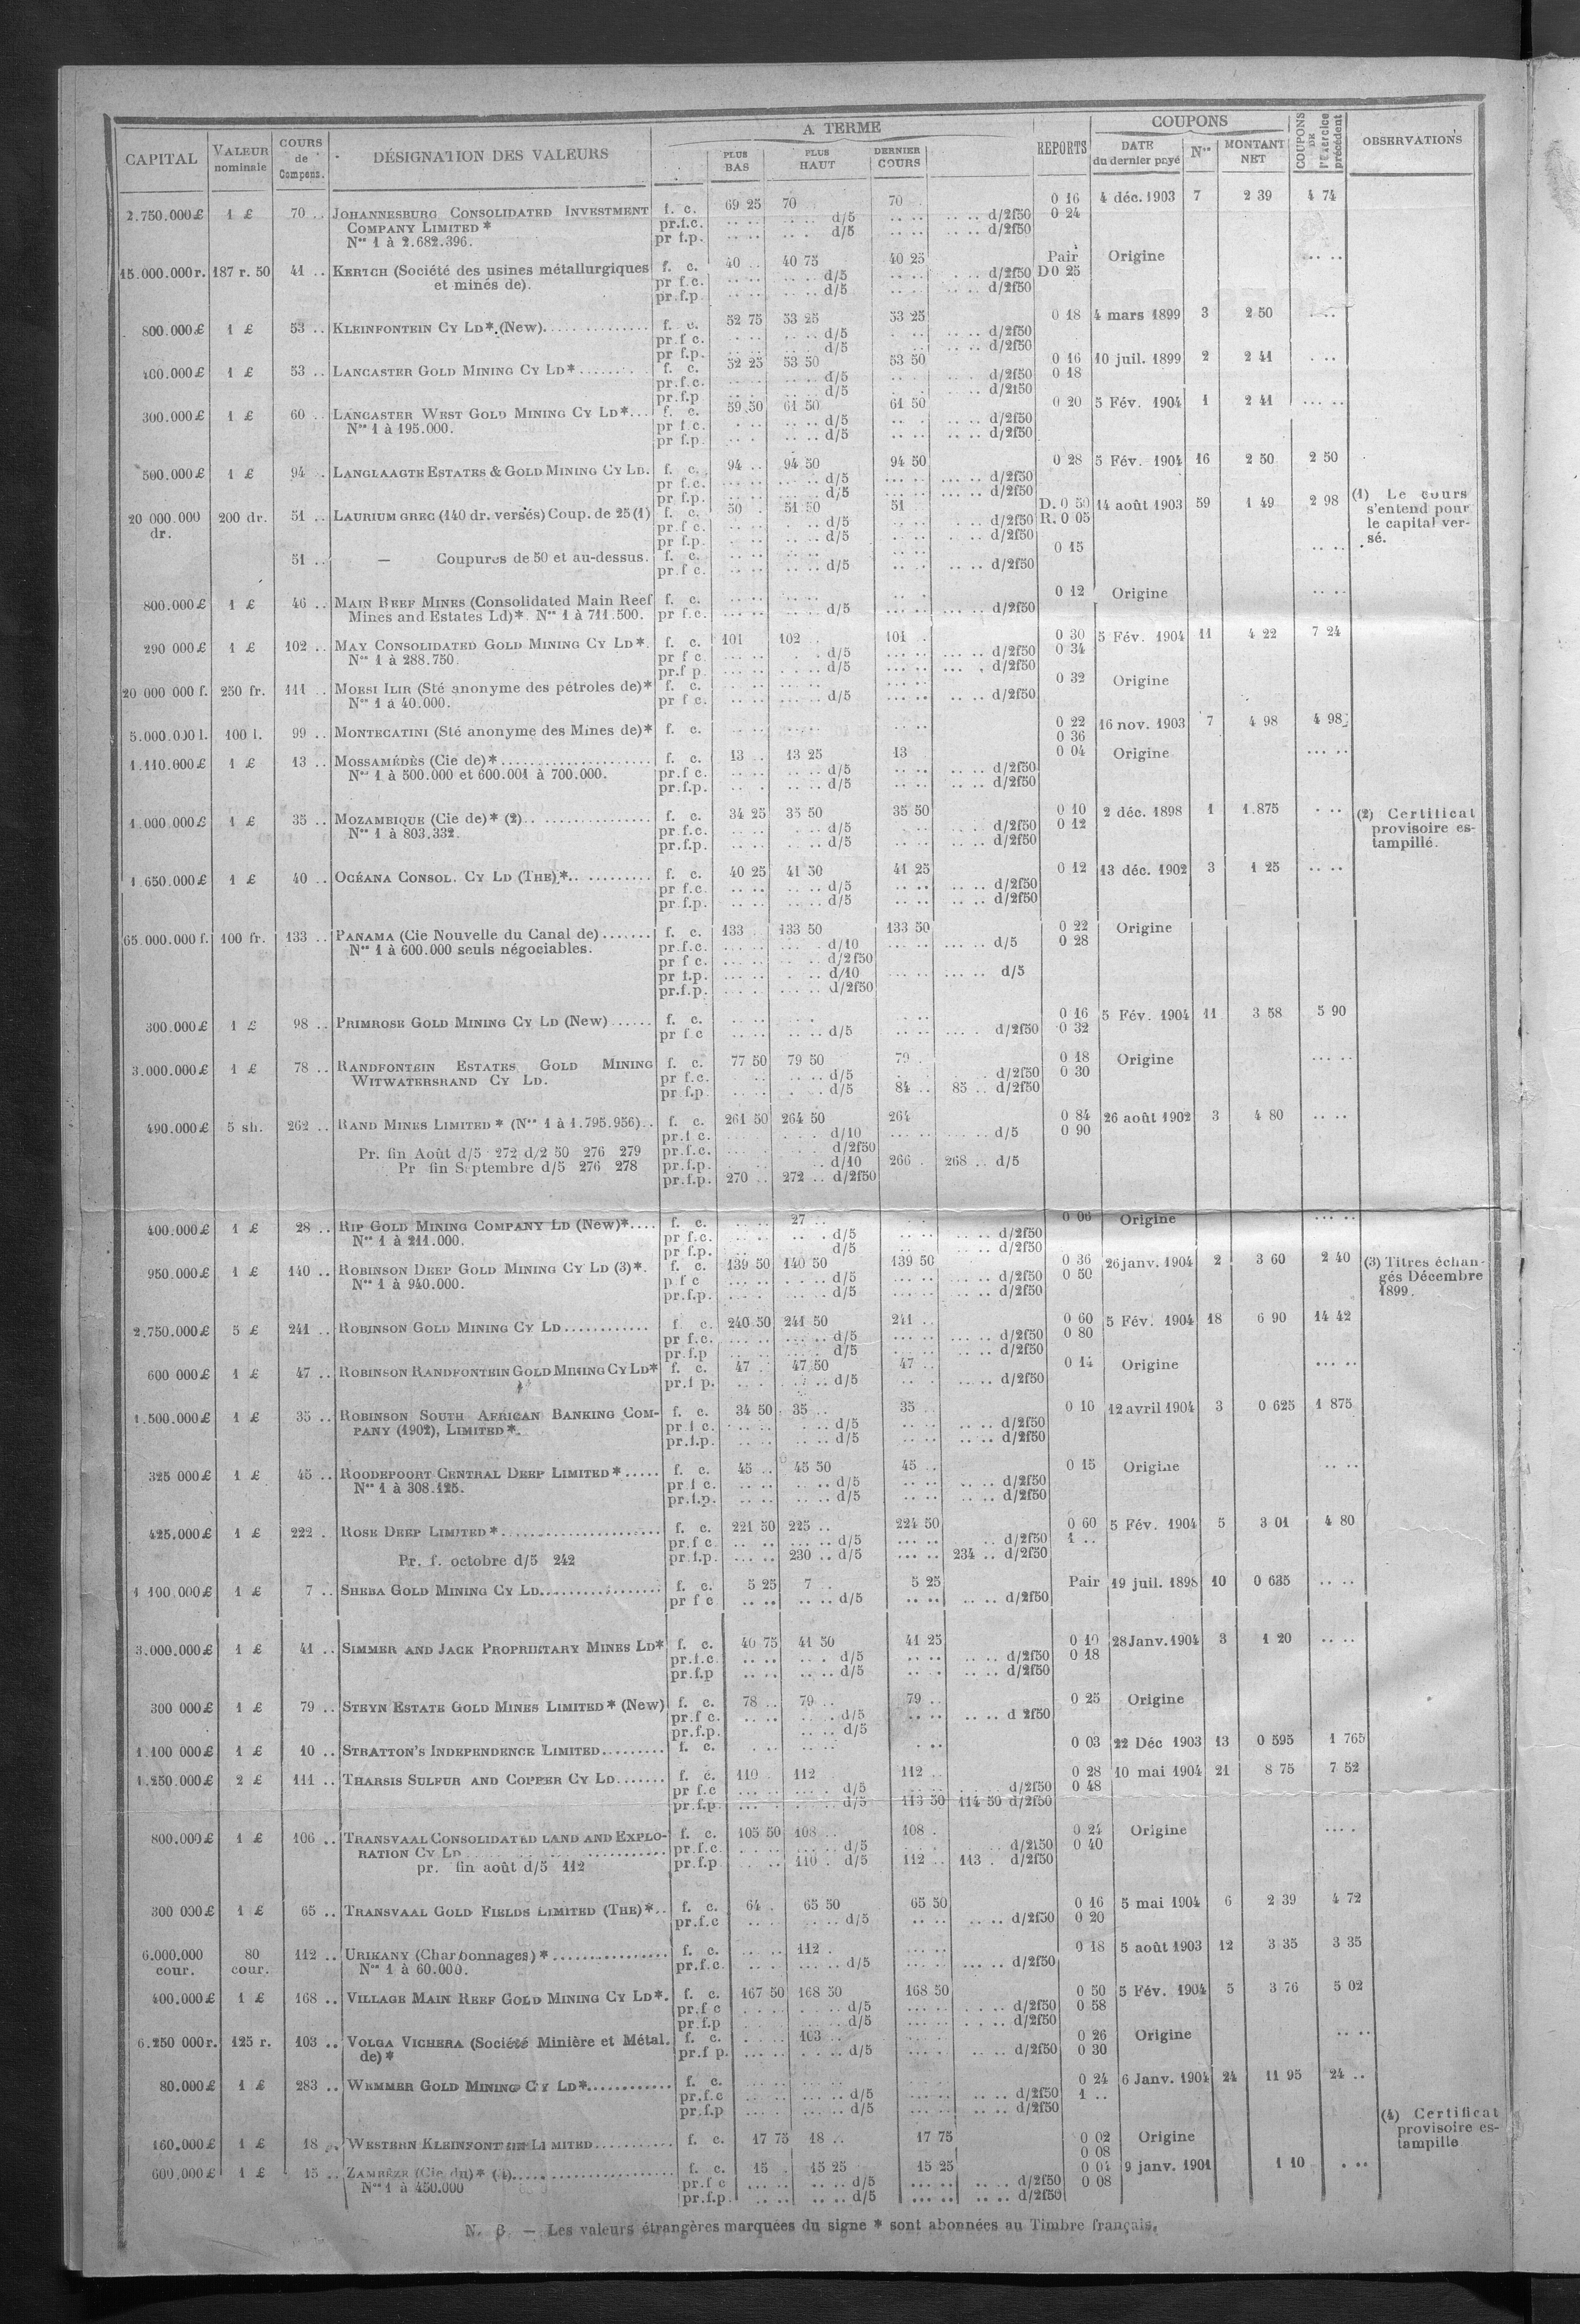 CAPITAL VALEUR nominale COURS de Compens. DÉSIGNATION DES VALEURS A TERME PLUS BAS PLUS HAUT DERNIER COURS REPORTS COUPONS DATE du dernier payé Nos MONTANT NET COUPONS DE l'Exercice précédent OBSERVATIONS
2.750.000£ 1 £ 70 .. JOHANNESBURG CONSOLIDATED INVESTMENT f. c. 69 25 70 70 0 16 4 déc. 1903 7 2 39 4 74
COMPANY LIMITED* pr.f.c. d/5 d/2f50 0 24
Nos 1 à 2.682.396. pr f.p. d/5 d/2f50
15.000.000r. 187 r. 50 41 .. KERTCH (Société des usines métallurgiques f. c. 40 .. 40 75 40 25 Pair Origine
et minés de). pr f.c. d/5 d/2f50 D 0 25
pr.f.p d/5 d/2f50
800.000£ 1 £ 53 .. KLEINFONTEIN CY LD*.(New) f. c. 52 75 53 25 53 25 0 18 4 mars 1899 3 2 50
pr.f c. d/5 d/2f50
pr f.p. d/5 d/2f50
400.000£ 1 £ 53 .. LANCASTER GOLD MINING CY LD* f. c. 52 25 53 50 53 50 0 16 10 juil. 1899 2 2 41
pr.f.c. d/5 d/2f50 0 18
pr.f.p d/5 d/2f50
300.000£ 1 £ 60 .. LANCASTER WEST GOLD MINING CY LD* f. c. 59 50 61 50 61 50 0 20 5 Fév. 1904 1 2 41
Nos 1 à 195.000. pr f.c. d/5 d/2f50
pr f.p. d/5 d/2f50
500.000£ 1 £ 94 .. LANGLAAGTE ESTATES & GOLD MINING CY LD. f. c. 94 .. 94 50 94 50 0 28 5 Fév. 1904 16 2 50 2 50
pr f.c. d/5 d/2f50
pr f.p. d/5 d/2f50
20 000.000 dr. 200 dr. 51 .. LAURIUM GREC (140 dr. versés) Coup. de 25 (1) f. c. 50 51 50 51 D. 0 50 14 août 1903 59 1 49 2 98 (1) Le cours
pr f c. d/5 d/2f50 R. 0 05 s'entend pour
pr f.p. d/5 d/2f50 le capital ver-
sé.
51 .. — Coupures de 50 et au-dessus. f. c. 0 15
pr.f c. d/5 d/2f50
800.000£ 1 £ 46 .. MAIN REEF MINES (Consolidated Main Reef f. c. 0 12 Origine
Mines and Estates Ld)*. Nos 1 à 711.500. pr f.c. d/5 d/2f50
290 000£ 1 £ 102 .. MAY CONSOLIDATED GOLD MINING CY LD*. f. c. 101 102 101 0 30 5 Fév. 1904 11 4 22 7 24
Nos 1 à 288.750. pr f c. d/5 d/2f50 0 34
pr.f p. d/5 d/2f50
20 000 000 f. 250 fr. 111 .. MORSI ILIR (Sté anonyme des pétroles de)* f. c. 0 32 Origine
Nos 1 à 40.000. pr f c. d/5 d/2f50
5.000.000 l. 100 l. 99 .. MONTECATINI (Sté anonyme des Mines de)* f. c. 0 22 16 nov. 1903 7 4 98 4 98
0 36
1.110.000£ 1 £ 13 .. MOSSAMÉDÈS (Cie de)* f. c. 13 13 25 13 0 04 Origine
Nos 1 à 500.000 et 600.001 à 700.000. pr.f c. d/5 d/2f50
pr.f.p. d/5 d/2f50
1.000.000£ 1 £ 35 .. MOZAMBIQUE (Cie de)* (2) f. c. 34 25 35 50 35 50 0 10 2 déc. 1898 1 1.875 (2) Certificat
Nos 1 à 803.332. pr.f.c. d/5 d/2f50 0 12 provisoire es-
pr.f.p. d/5 d/2f50 tampillé.
1.650.000£ 1 £ 40 .. OCÉANA CONSOL. CY LD (THE)* f. c. 40 25 41 50 41 25 0 12 13 déc. 1902 3 1 25
pr f.c. d/5 d/2f50
pr f.p. d/5 d/2f50
65.000.000 f. 100 fr. 133 .. PANAMA (Cie Nouvelle du Canal de) f. c. 133 133 50 133 50 0 22 Origine
Nos 1 à 600.000 seuls négociables. pr.f.c. d/10 d/5 0 28
pr f c. d/2f50
pr f.p. d/10 d/5
pr.f.p. d/2f50
300.000£ 1 £ 98 .. PRIMROSE GOLD MINING CY LD (New) f. c. 0 16 5 Fév. 1904 11 3 58 5 90
pr f c d/5 d/2f50 0 32
3.000.000£ 1 £ 78 .. RANDFONTEIN ESTATES GOLD MINING f. c. 77 50 79 50 79 0 18 Origine
WITWATERSRAND CY LD. pr f.c. d/5 d/2f50 0 30
pr f.p. d/5 84 .. 85 .. d/2f50
490.000£ 5 sh. 262 .. RAND MINES LIMITED* (Nos 1 à 1.795.956) f. c. 261 50 264 50 264 0 84 26 août 1902 3 4 80
pr.f c. d/10 d/5 0 90
Pr. fin Août d/5 272 d/2 50 276 279 pr.f.c. d/2f50
Pr fin Septembre d/5 276 278 pr.f.p. d/10 266 268 .. d/5
pr.f.p. 270 272 .. d/2f50
400.000£ 1 £ 28 .. RIP GOLD MINING COMPANY LD (New)* f. c. 27 0 06 Origine
Nos 1 à 211.000. pr f.c. d/5 d/2f50
pr f.p. d/5 d/2f50
950.000£ 1 £ 140 .. ROBINSON DEEP GOLD MINING CY LD (3)*. f. c. 139 50 140 50 139 50 0 36 26 janv. 1904 2 3 60 2 40 (3) Titres échan-
Nos 1 à 940.000. p f c d/5 d/2f50 0 50 gés Décembre
pr.f.p. d/5 d/2f50 1899.
2.750.000£ 5 £ 241 .. ROBINSON GOLD MINING CY LD f c. 240 50 241 50 241 0 60 5 Fév. 1904 18 6 90 14 42
pr f.c. d/5 d/2f50 0 80
pr.f.p d/5 d/2f50
600 000£ 1 £ 47 .. ROBINSON RANDFONTEIN GOLD MINING CY LD* f. c. 47 47 50 47 0 14 Origine
pr.f p. d/5 d/2f50
1.500.000£ 1 £ 35 .. ROBINSON SOUTH AFRICAN BANKING COM- f. c. 34 50 35 35 0 10 12 avril 1904 3 0 625 1 875
PANY (1902), LIMITED*. pr f c. d/5 d/2f50
pr.f.p. d/5 d/2f50
325 000£ 1 £ 45 .. ROODEPOORT CENTRAL DEEP LIMITED* f. c. 45 45 50 45 0 15 Origine
Nos 1 à 308.125. pr.f c. d/5 d/2f50
pr.f.p. d/5 d/2f50
425.000£ 1 £ 222 . ROSE DEEP LIMITED* f. c. 221 50 225 .. 224 50 0 60 5 Fév. 1904 5 3 01 4 80
pr.f c. d/5 d/2f50 1 ..
Pr. f. octobre d/5 242 pr.f.p. 230 .. d/5 234 .. d/2f50
1 100.000£ 1 £ 7 .. SHEBA GOLD MINING CY LD f. c. 5 25 7 5 25 Pair 19 juil. 1898 10 0 635
pr f c d/5 d/2f50
3.000.000£ 1 £ 41 .. SIMMER AND JACK PROPRIETARY MINES LD* f. c. 40 75 41 50 41 25 0 10 28 Janv. 1904 3 1 20
pr.f.c. d/5 d/2f50 0 18
pr f.p d/5 d/2f50
300 000£ 1 £ 79 .. STEYN ESTATE GOLD MINES LIMITED* (New) f. c. 78 .. 79 .. 79 .. 0 25 Origine
pr.f c. d/5 d 2f50
pr.f.p. d/5
1.100 000£ 1 £ 10 .. STRATTON'S INDEPENDENCE LIMITED f. c. 0 03 22 Déc 1903 13 0 595 1 765
1.250.000£ 2 £ 111 .. THARSIS SULFUR AND COPPER CY LD f. c. 110 112 112 0 28 10 mai 1904 21 8 75 7 52
pr f.c d/5 d/2f50 0 48
pr.f.p d/5 113 50 114 50 d/2f50
800.000£ 1 £ 106 .. TRANSVAAL CONSOLIDATED LAND AND EXPLO- f. c. 105 50 108 108 0 24 Origine
RATION CY LD pr.f.c. d/5 d/2f50 0 40
pr. fin août d/5 112 pr.f.p 110 . d/5 112 .. 113 . d/2f50
300 000£ 1 £ 65 .. TRANSVAAL GOLD FIELDS LIMITED (THE)* f. c. 64 65 50 65 50 0 16 5 mai 1904 6 2 39 4 72
pr.f.c d/5 d/2f50 0 20
6.000.000 cour. 80 cour. 112 .. URIKANY (Charbonnages)* f. c. 112 0 18 5 août 1903 12 3 35 3 35
Nos 1 à 60.000. pr.f.c. d/5 d/2f50
400.000£ 1 £ 168 .. VILLAGE MAIN REEF GOLD MINING CY LD*. f. c. 167 50 168 50 168 50 0 50 5 Fév. 1904 5 3 76 5 02
pr.f c d/5 d/2f50 0 58
pr.f.p d/5 d/2f50
6.250 000 r. 125 r. 103 .. VOLGA VICHERA (Société Minière et Métal. f. c. 103 0 26 Origine
de)* pr.f p. d/5 d/2f50 0 30
80.000£ 1 £ 283 .. WEMMER GOLD MINING CY LD* f. c. 0 24 6 Janv. 1904 24 11 95 24 ..
pr.f.c d/5 d/2f50 1 ..
pr.f.p d/5 d/2f50
160.000£ 1 £ 18 WESTERN KLEINFONTEIN LIMITED f. c. 17 75 18 .. 17 75 0 02 Origine (4) Certificat
0 08 provisoire es-
tampillé
600.000£ 1 £ 15 .. ZAMBÈZE (Cie du)* (4) f. c. 15 15 25 15 25 0 04 9 janv. 1901 1 10
Nos 1 à 450.000 pr.f c d/5 d/2f50 0 08
pr.f.p. d/5 d/2f50
N. B. — Les valeurs étrangères marquées du signe * sont abonnées au Timbre français.